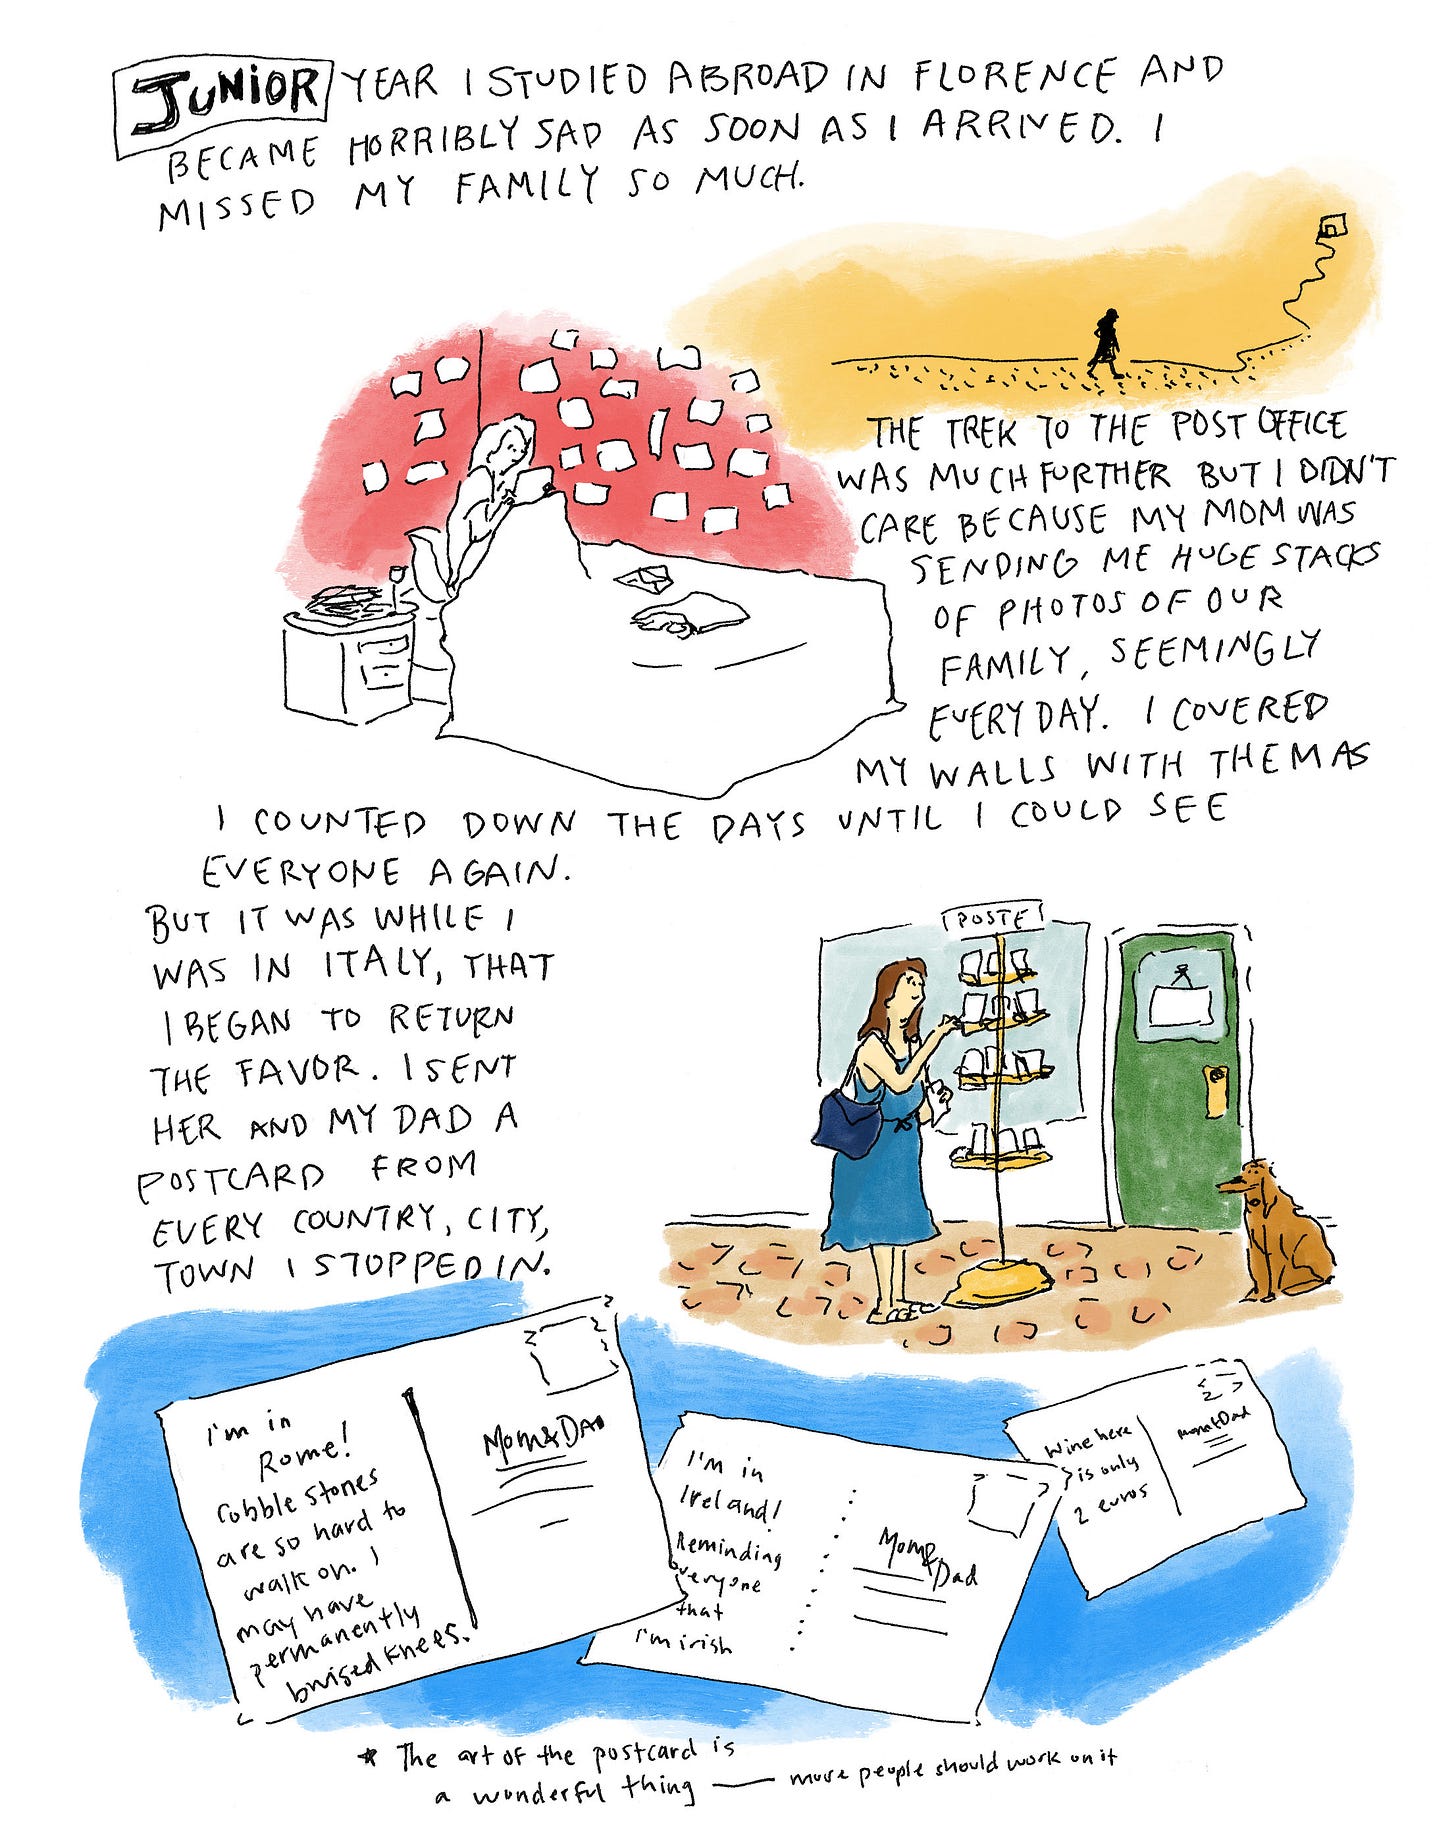 JUNIOR YEAR I STUDIED ABROAD IN FLORENCE AND
BECAME HORRIBLY SAD AS SOON AS I ARRIVED. I
MISSED MY FAMILY SO MUCH.
THE TREK TO THE POST OFFICE
WAS MUCH FURTHER BUT I DIDN'T
CARE BECAUSE MY MOM WAS
SENDING ME HUGE STACKS
OF PHOTOS OF OUR
FAMILY, SEEMINGLY
EVERYDAY. I COVERED
MY WALLS WITH THEM AS
I COUNTED DOWN THE DAYS UNTIL I COULD SEE
EVERYONE AGAIN.
BUT IT WAS WHILE I
WAS IN ITALY, THAT
I BEGAN TO RETURN
THE FAVOR. I SENT
HER AND MY DAD A
POSTCARD FROM
EVERY COUNTRY, CITY,
TOWN I STOPPED IN.
POSTE
I'm in
Rome!
Cobble stones
are so hard to
walk on. I
may have
permanently
bruised knees.
Mom & DAD
I'm in
Ireland!
Reminding
everyone
that
I'm irish
Mom &
Dad
Wine here
is only
2 euros
mom + Dad
* The art of the postcard is
a wonderful thing — more people should work on it